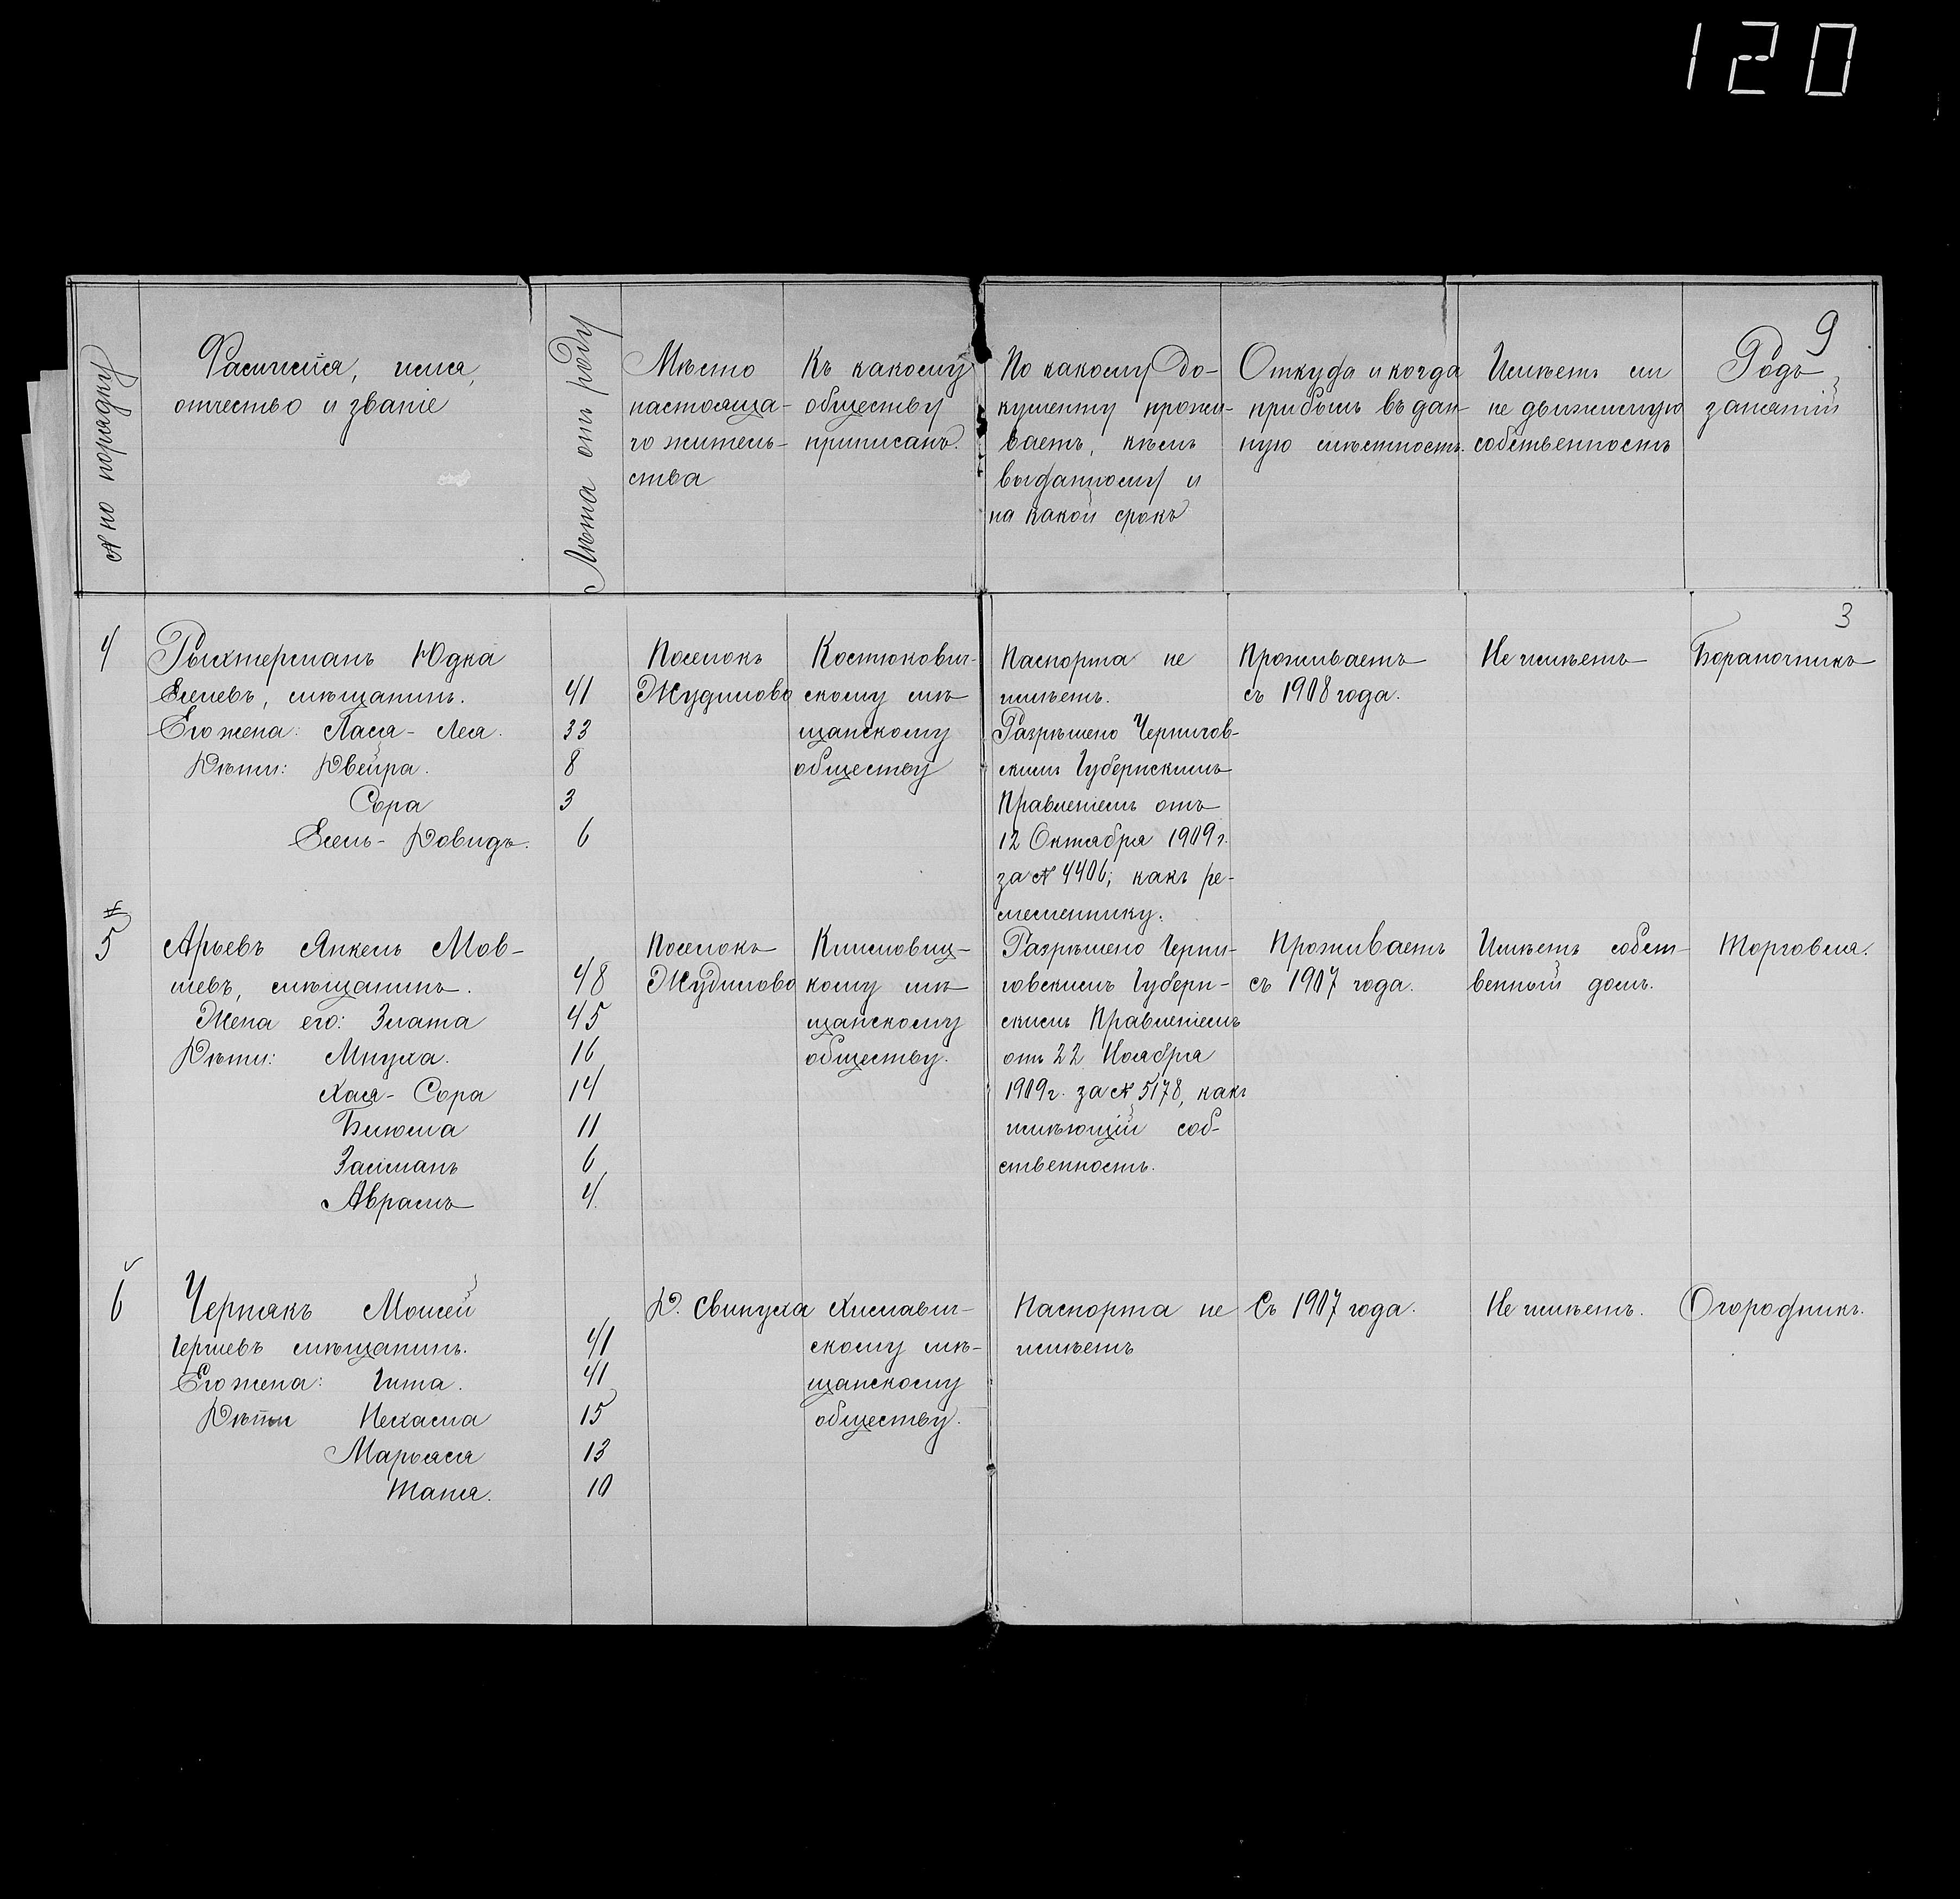 120
9
№ по порядку
Фамилія, имя,
отчество и званіе
Лѣта отъ роду
Мѣсто
настояща-
го житель-
ства
Къ какому
обществу
приписанъ.
По какому до-
кументу прожи-
ваетъ, кѣмъ
выданному и
на какой срокъ
Откуда и когда
прибылъ въ дан-
ную мѣстность.
Имѣетъ ли
не движимую
собственность
Родъ
занятій
3
4
Рыхтерманъ Юдка
Елевъ, мѣщанинъ. 41
Его жена: Хася-Лея. 33
Дѣти: Двейра. 8
Сора 3
Емель-Довидъ. 6
Поселокъ
Жудилово
Костюкович-
скому мѣ
щанскому
обществу
Паспорта не
имѣетъ.
Разрѣшено Чернигов-
скимъ Губернскимъ
Правленіемъ отъ
12 Октября 1909 г.
за № 4406; какъ ре-
месленнику.
Проживаетъ
съ 1908 года.
Не имѣетъ
Бараночникъ
5
Арьевъ Янкель Мов-
шевъ, мѣщанинъ. 48
Жена его: Злата 45
Дѣти: Мнуха. 16
Хася-Сора 14
Блюма 11
Залманъ 6
Аврамъ 4.
Поселокъ
Жудилово
Климовиц-
кому мѣ
щанскому
обществу.
Разрѣшено Черни-
говскимъ Губерн-
скимъ Правленіемъ
отъ 22 Ноября
1909 г. за № 5178, какъ
имѣющій соб-
ственность.
Проживаетъ
съ 1907 года.
Имѣетъ собст
венный домъ.
Торговля.
6
Чернякъ Мовшей
Гершевъ мѣщанинъ. 41
Его жена: Гита. 41
Дѣти Нехама 15
Марьяся 13
Таня. 10
Д. Свинуха
Хиславич-
скому мѣ-
щанскому
обществу.
Паспорта не
имѣетъ
Съ 1907 года.
Не имѣетъ.
Огородникъ.